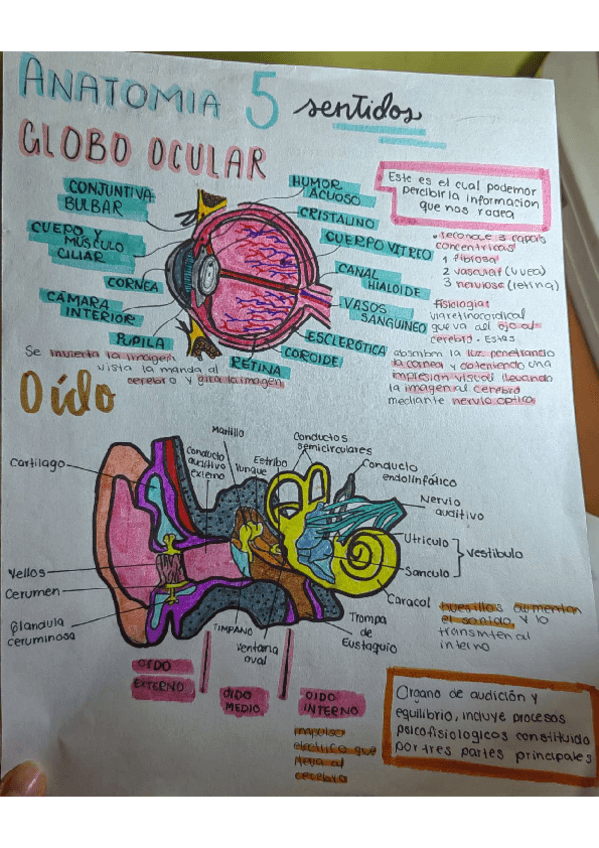 ANATOMIA 5 sentidos
GLOBO OCULAR
Este es el cual podemor
percibir la informacion
que nos rodea
CONJUNTIVA
BULBAR
CUEPO Y
MÚSCULO
CILIAR
CORNEA
CÁMARA
INTERIOR
PUPILA
HUMOR
ACUOSO
CRISTALINO
CUERPO VITREO
CANAL
HIALOIDE
VASOS
SANGUINEO
ESCLERÓTICA
COROIDE
RETINA
• reconoce 3 capas
concentricas
1 fibrosa
2 vascular (uvea)
3 nerviosa (retina)
fisiologia:
viaretinocordical
que va del ojo al
cerebro. Estas
absorbm la luz penetrando
la cornea y obteniendo una
impresion visual llevando
la imagen al cerebro
mediante nervio optico
Se invierta la imagen
vista la manda al
cerebro y gira la imagen
Oído
Cartilago
Vellos
Cerumen
Glandula
ceruminosa
Conducto
auditivo
externo
Martillo
Yunque
Estribo
Conductos
semicirculares
Conducto
endolinfático
Nervio
auditivo
Utriculo
Sanculo
Vestibulo
Caracol
Trompa
de
Eustaquio
Ventana
oval
TIMPANO
huesillos aumentan
el sonido, y lo
transmiten al
interno
OIDO
EXTERNO
OIDO
MEDIO
OIDO
INTERNO
impulso
electrico que
lleva al
cerebro
Organo de audición y
equilibrio, incluye procesos
psicofisiologicos constituido
por tres partes principales